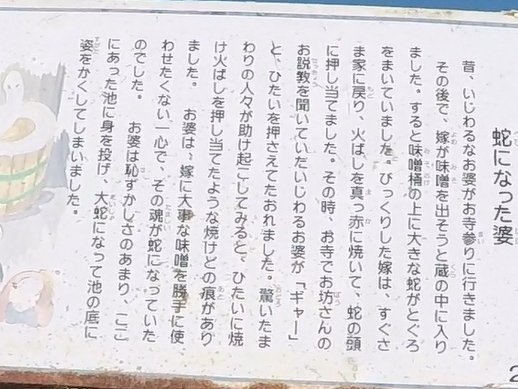 蛇になった婆
昔、いじわるなお婆がお寺参りに行きました。
その後で、嫁が味噌を出そうと蔵の中に入り
ました。すると味噌桶の上に大きな蛇がとぐろ
をまいていました。びっくりした嫁は、すぐさ
ま家に戻り、火ばしを真っ赤に焼いて、蛇の頭
に押し当てました。その時、お寺でお坊さんの
お説教を聞いていたいじわるお婆が「ギャー」
と、ひたいを押さえてたおれました。驚いたま
わりの人々が助け起こしてみると、ひたいに焼
け火ばしを押し当てたような焼けどの痕があり
ました。　お婆は、嫁に大事な味噌を勝手に使
わせたくない一心で、その魂が蛇になっていた
のでした。　お婆は恥ずかしさのあまり、ここ
にあった池に身を投げ、大蛇になって池の底に
姿をかくしてしまいました。